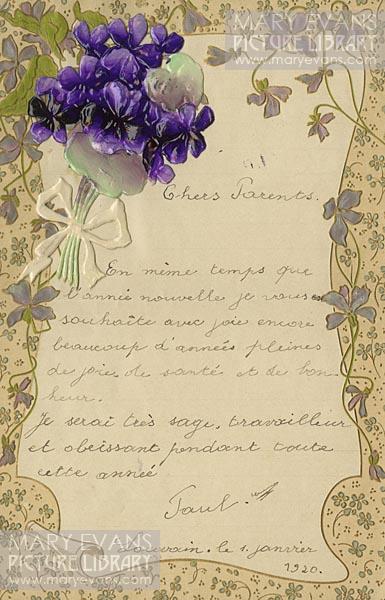 MARY EVANS
PICTURE LIBRARY
www.maryevans.com
Chers Parents.
En même temps que
l'année nouvelle je vous
souhaite avec joie encore
beaucoup d'années pleines
de joie, de santé et de bon-
heur.
Je serai très sage, travailleur
et obéissant pendant toute
cette année
Paul.
MARY EVANS
PICTURE LIBRARY
le 1 janvier
www.maryevans.com
1920.